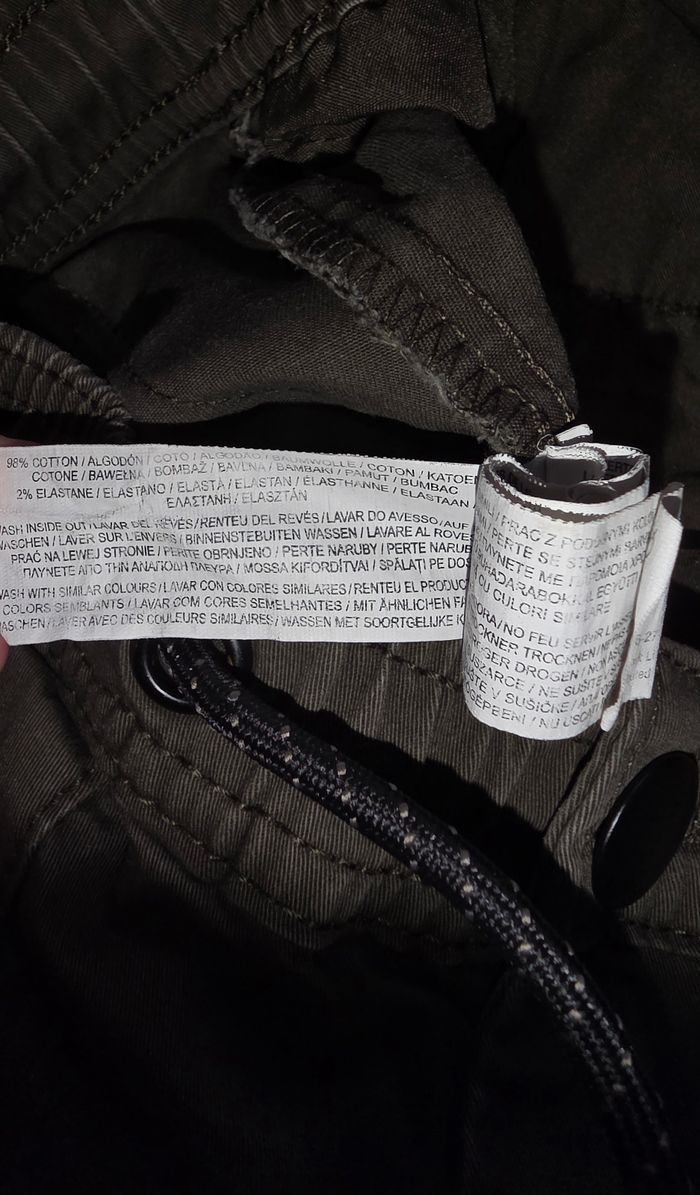 98% COTTON / ALGODÓN / COTÓ / ALGODÃO / BAUMWOLLE / COTON / KATOE
COTONE / BAWEŁNA / BOMBAŽ / BAVLNA / BAMBAKI / PAMUT / BUMBAC
2% ELASTANE / ELASTANO / ELASTÀ / ELASTAN / ÉLASTHANNE / ELASTAAN
ΕΛΑΣΤΑΝΗ / ELASZTÁN
ASH INSIDE OUT / LAVAR DEL REVÉS / RENTEU DEL REVÉS / LAVAR DO AVESSO / AUF
WASCHEN / LAVER SUR L'ENVERS / BINNENSTEBUITEN WASSEN / LAVARE AL ROVES
PRAĆ NA LEWEJ STRONIE / PERITE OBRNJENO / PERTE NARUBY / PERTE NARUB
ΠΛΥΝΕΤΕ ΑΠΟ ΤΗΝ ΑΝΑΠΟΔΗ ΠΛΕΥΡΑ / MOSSA KIFORDÍTVA / SPĂLAȚI PE DOS
WASH WITH SIMILAR COLOURS / LAVAR CON COLORES SIMILARES / RENTEU EL PRODUC
COLORS SEMBLANTS / LAVAR COM CORES SEMELHANTES / MIT ÄHNLICHEN FA
ASCHEN / LAVER AVEC DES COULEURS SIMILAIRES / WASSEN MET SOORTGELIJKE K
PRAĆ Z PODOBNYMI KOLO
PERTE SE STEJNÝMI BAR
ΠΛΥΝΕΤΕ ΜΕ
RUHADARABOKKAL EGYÜTT
CU CULORI SIMILARE
NO FEU SERVIR L'ASS
TROCKNER TROCKNEN
DROGEN / NON AS
NE SUŠITE
V SUŠIČKE
NU USCAȚI